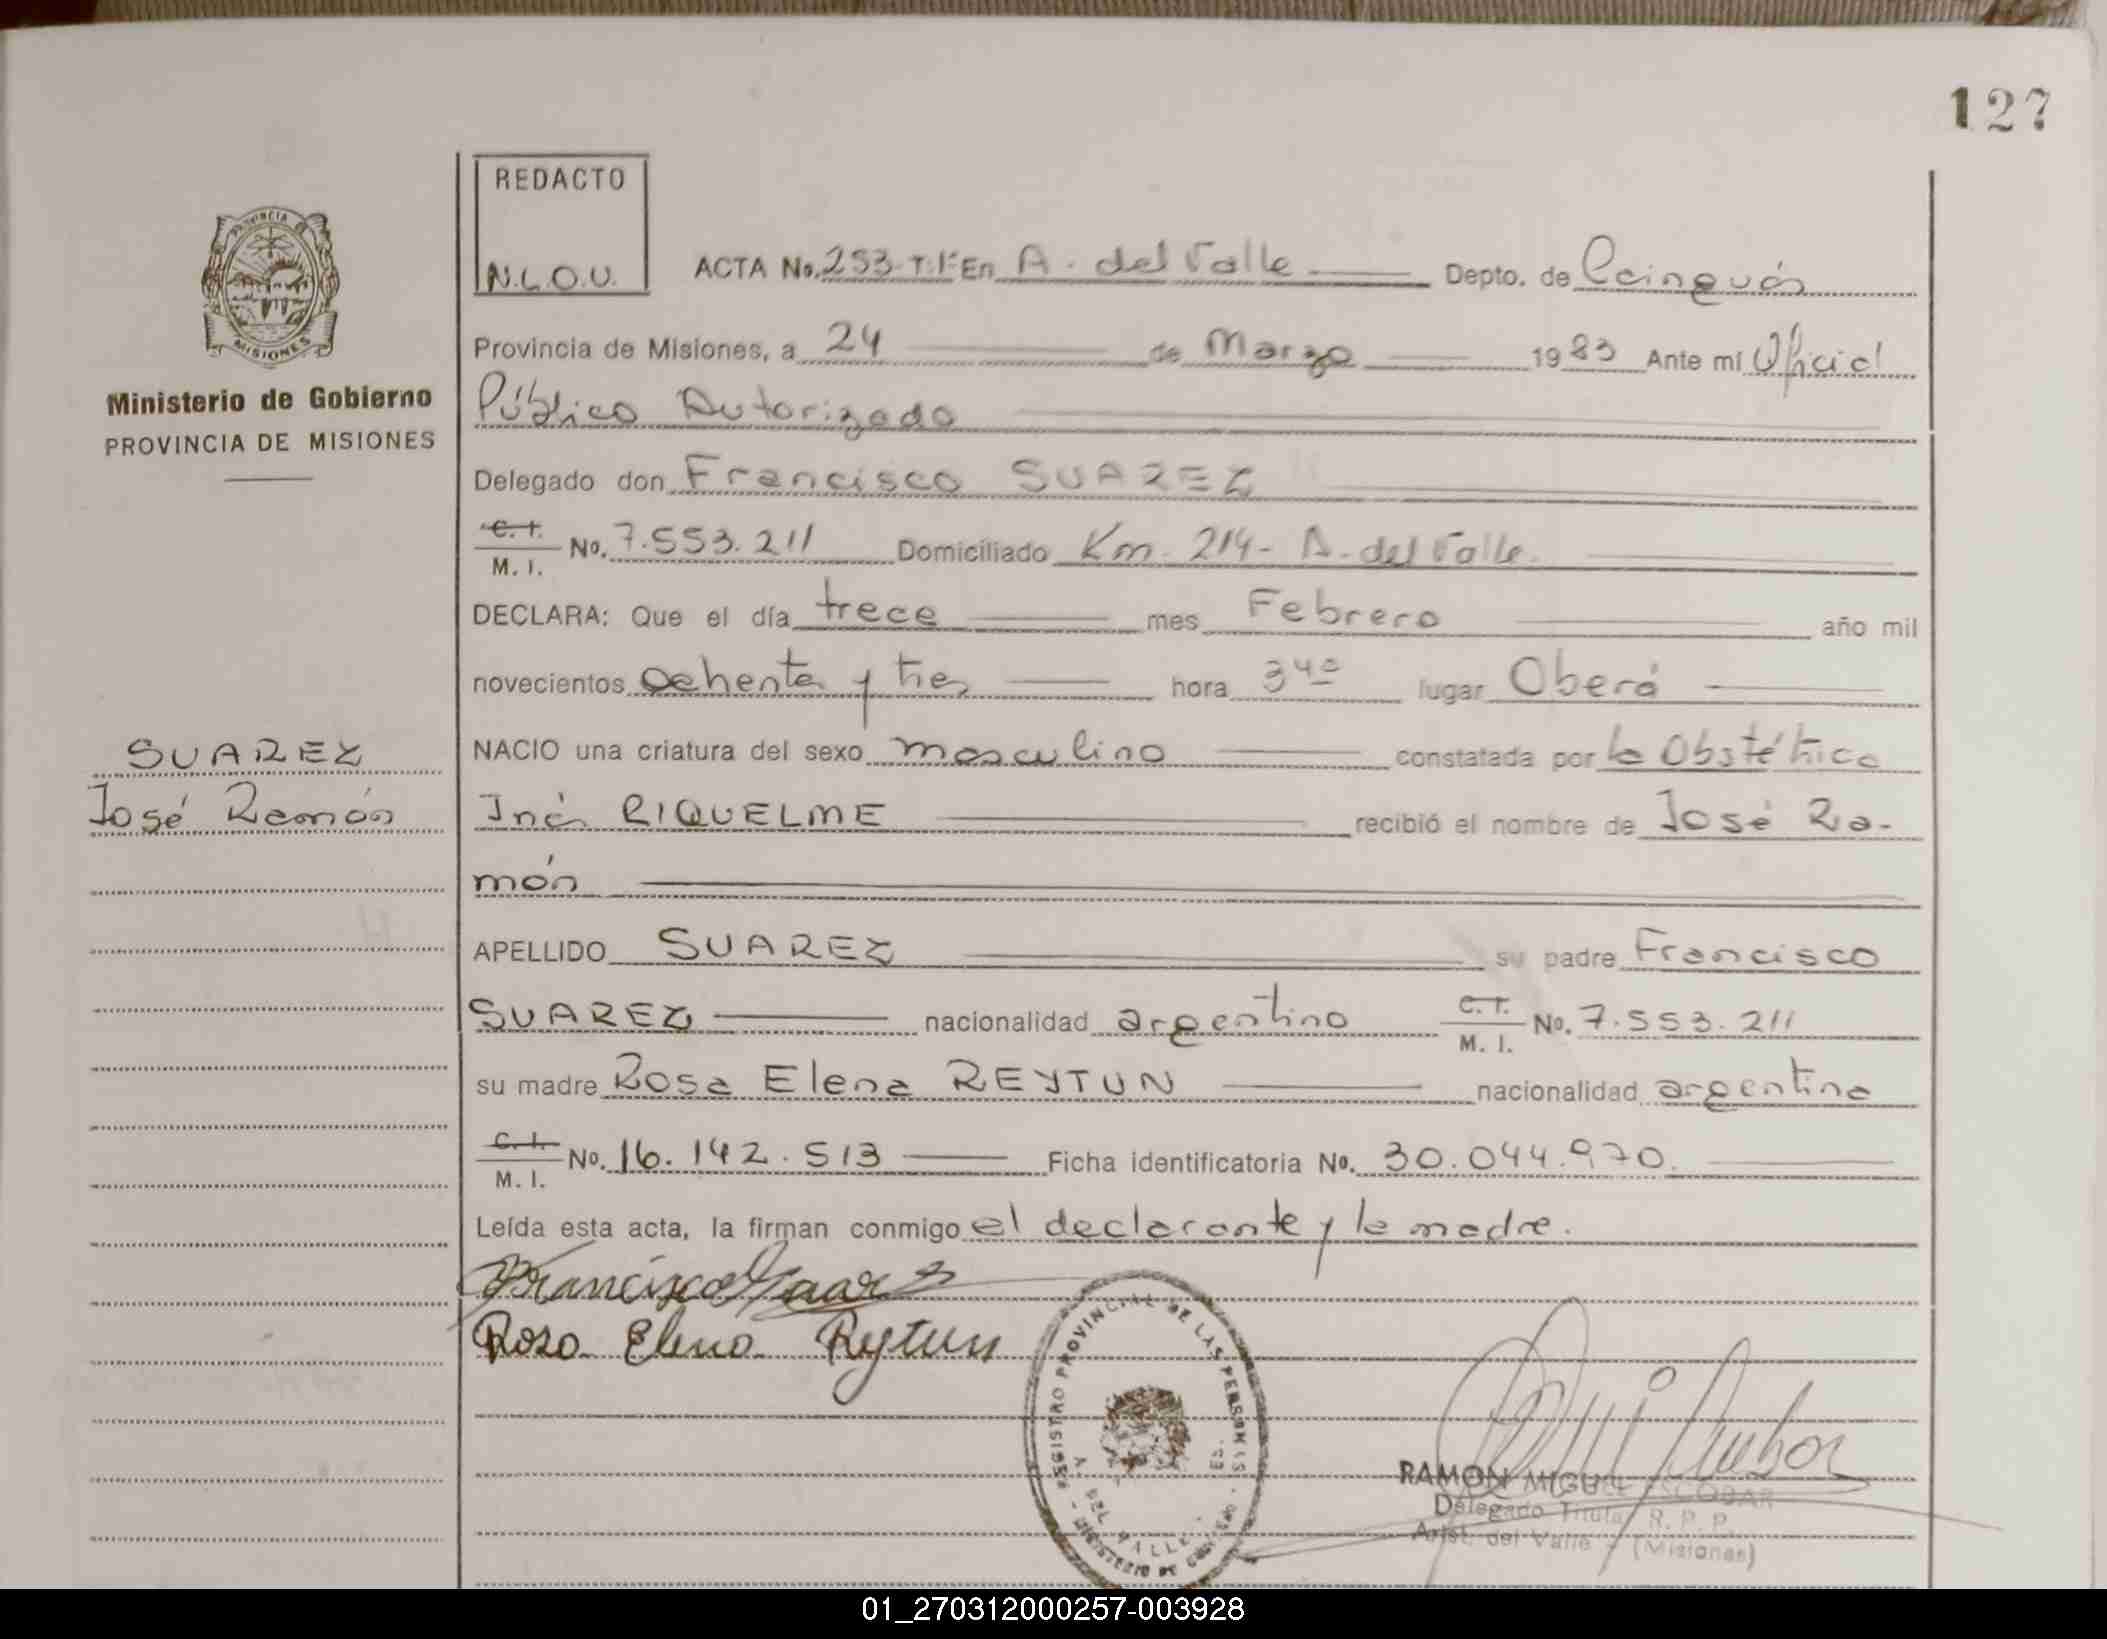 127
REDACTO
N.L.O.U.
PROVINCIA
MISIONES
Ministerio de Gobierno
PROVINCIA DE MISIONES
ACTA No. 253-T.1º En A. del Valle Depto. de Cainguás
Provincia de Misiones, a 24 de Marzo 1983 Ante mí Oficial
Público Autorizado
Delegado don Francisco SUAREZ
C. I. M. I. No. 7.553.211 Domiciliado Km. 214- A. del Valle.
DECLARA: Que el día trece mes Febrero año mil
novecientos ochenta y tres hora 3⁴⁰ lugar Oberá
SUAREZ
José Ramón
NACIO una criatura del sexo masculino constatada por la Obstétrica
Inés RIQUELME recibió el nombre de José Ra-
món
APELLIDO SUAREZ su padre Francisco
SUAREZ nacionalidad argentino C. I. M. I. No. 7.553.211
su madre Rosa Elena REYTUN nacionalidad argentina
C. I. M. I. No. 16.142.513 Ficha identificatoria No. 30.044.970.
Leída esta acta, la firman conmigo el declarante y la madre.
Francisco Suarez
Rosa Elena Reytun
REGISTRO PROVINCIAL DE LAS PERSONAS
A. DEL VALLE
MINISTERIO DE GOBIERNO
RAMON MIGUEL ESCOBAR
Delegado Titular R. P. P.
Arist. del Valle - (Misiones)
01_270312000257-003928